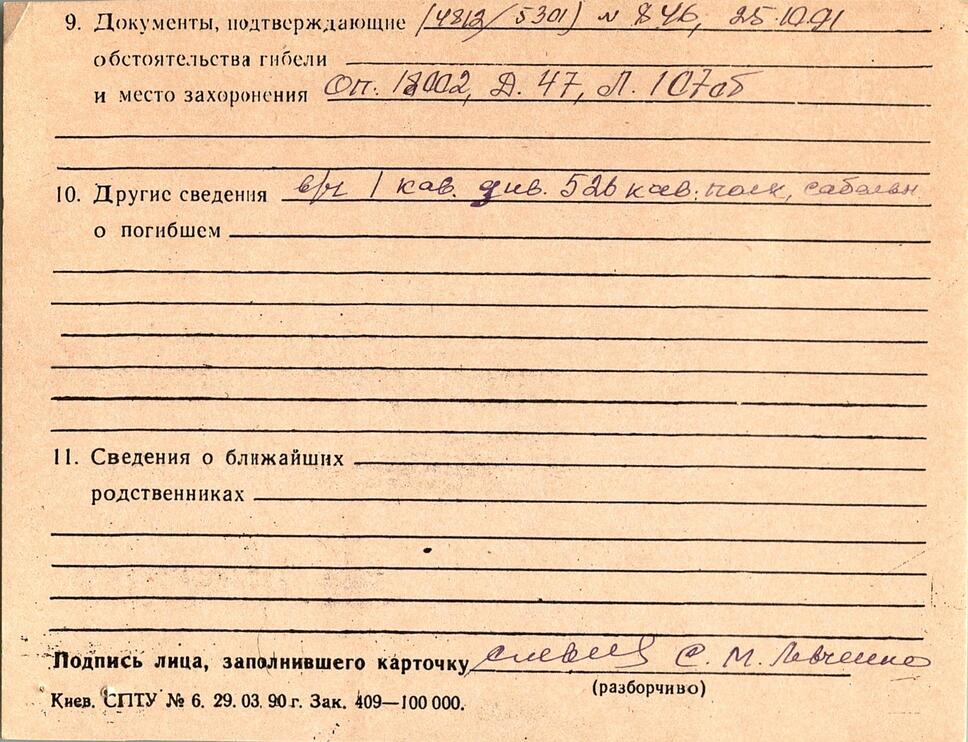 9. Документы, подтверждающие (4812/5301) № 846, 25.10.91
обстоятельства гибели
и место захоронения Оп. 18002, Д. 47, Л. 107об
10. Другие сведения в/ч 1 кав. див. 526 кав. полк, сабельн
о погибшем
11. Сведения о ближайших
родственниках
Подпись лица, заполнившего карточку С. М. Левченко
(разборчиво)
Киев. СПТУ № 6. 29. 03. 90 г. Зак. 409—100 000.